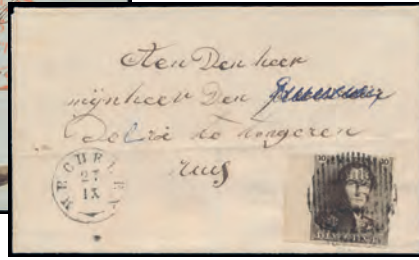 Aen Den heer
mÿnheer Den
Debré to tongeren
MECHELEN
27
IX
10 10